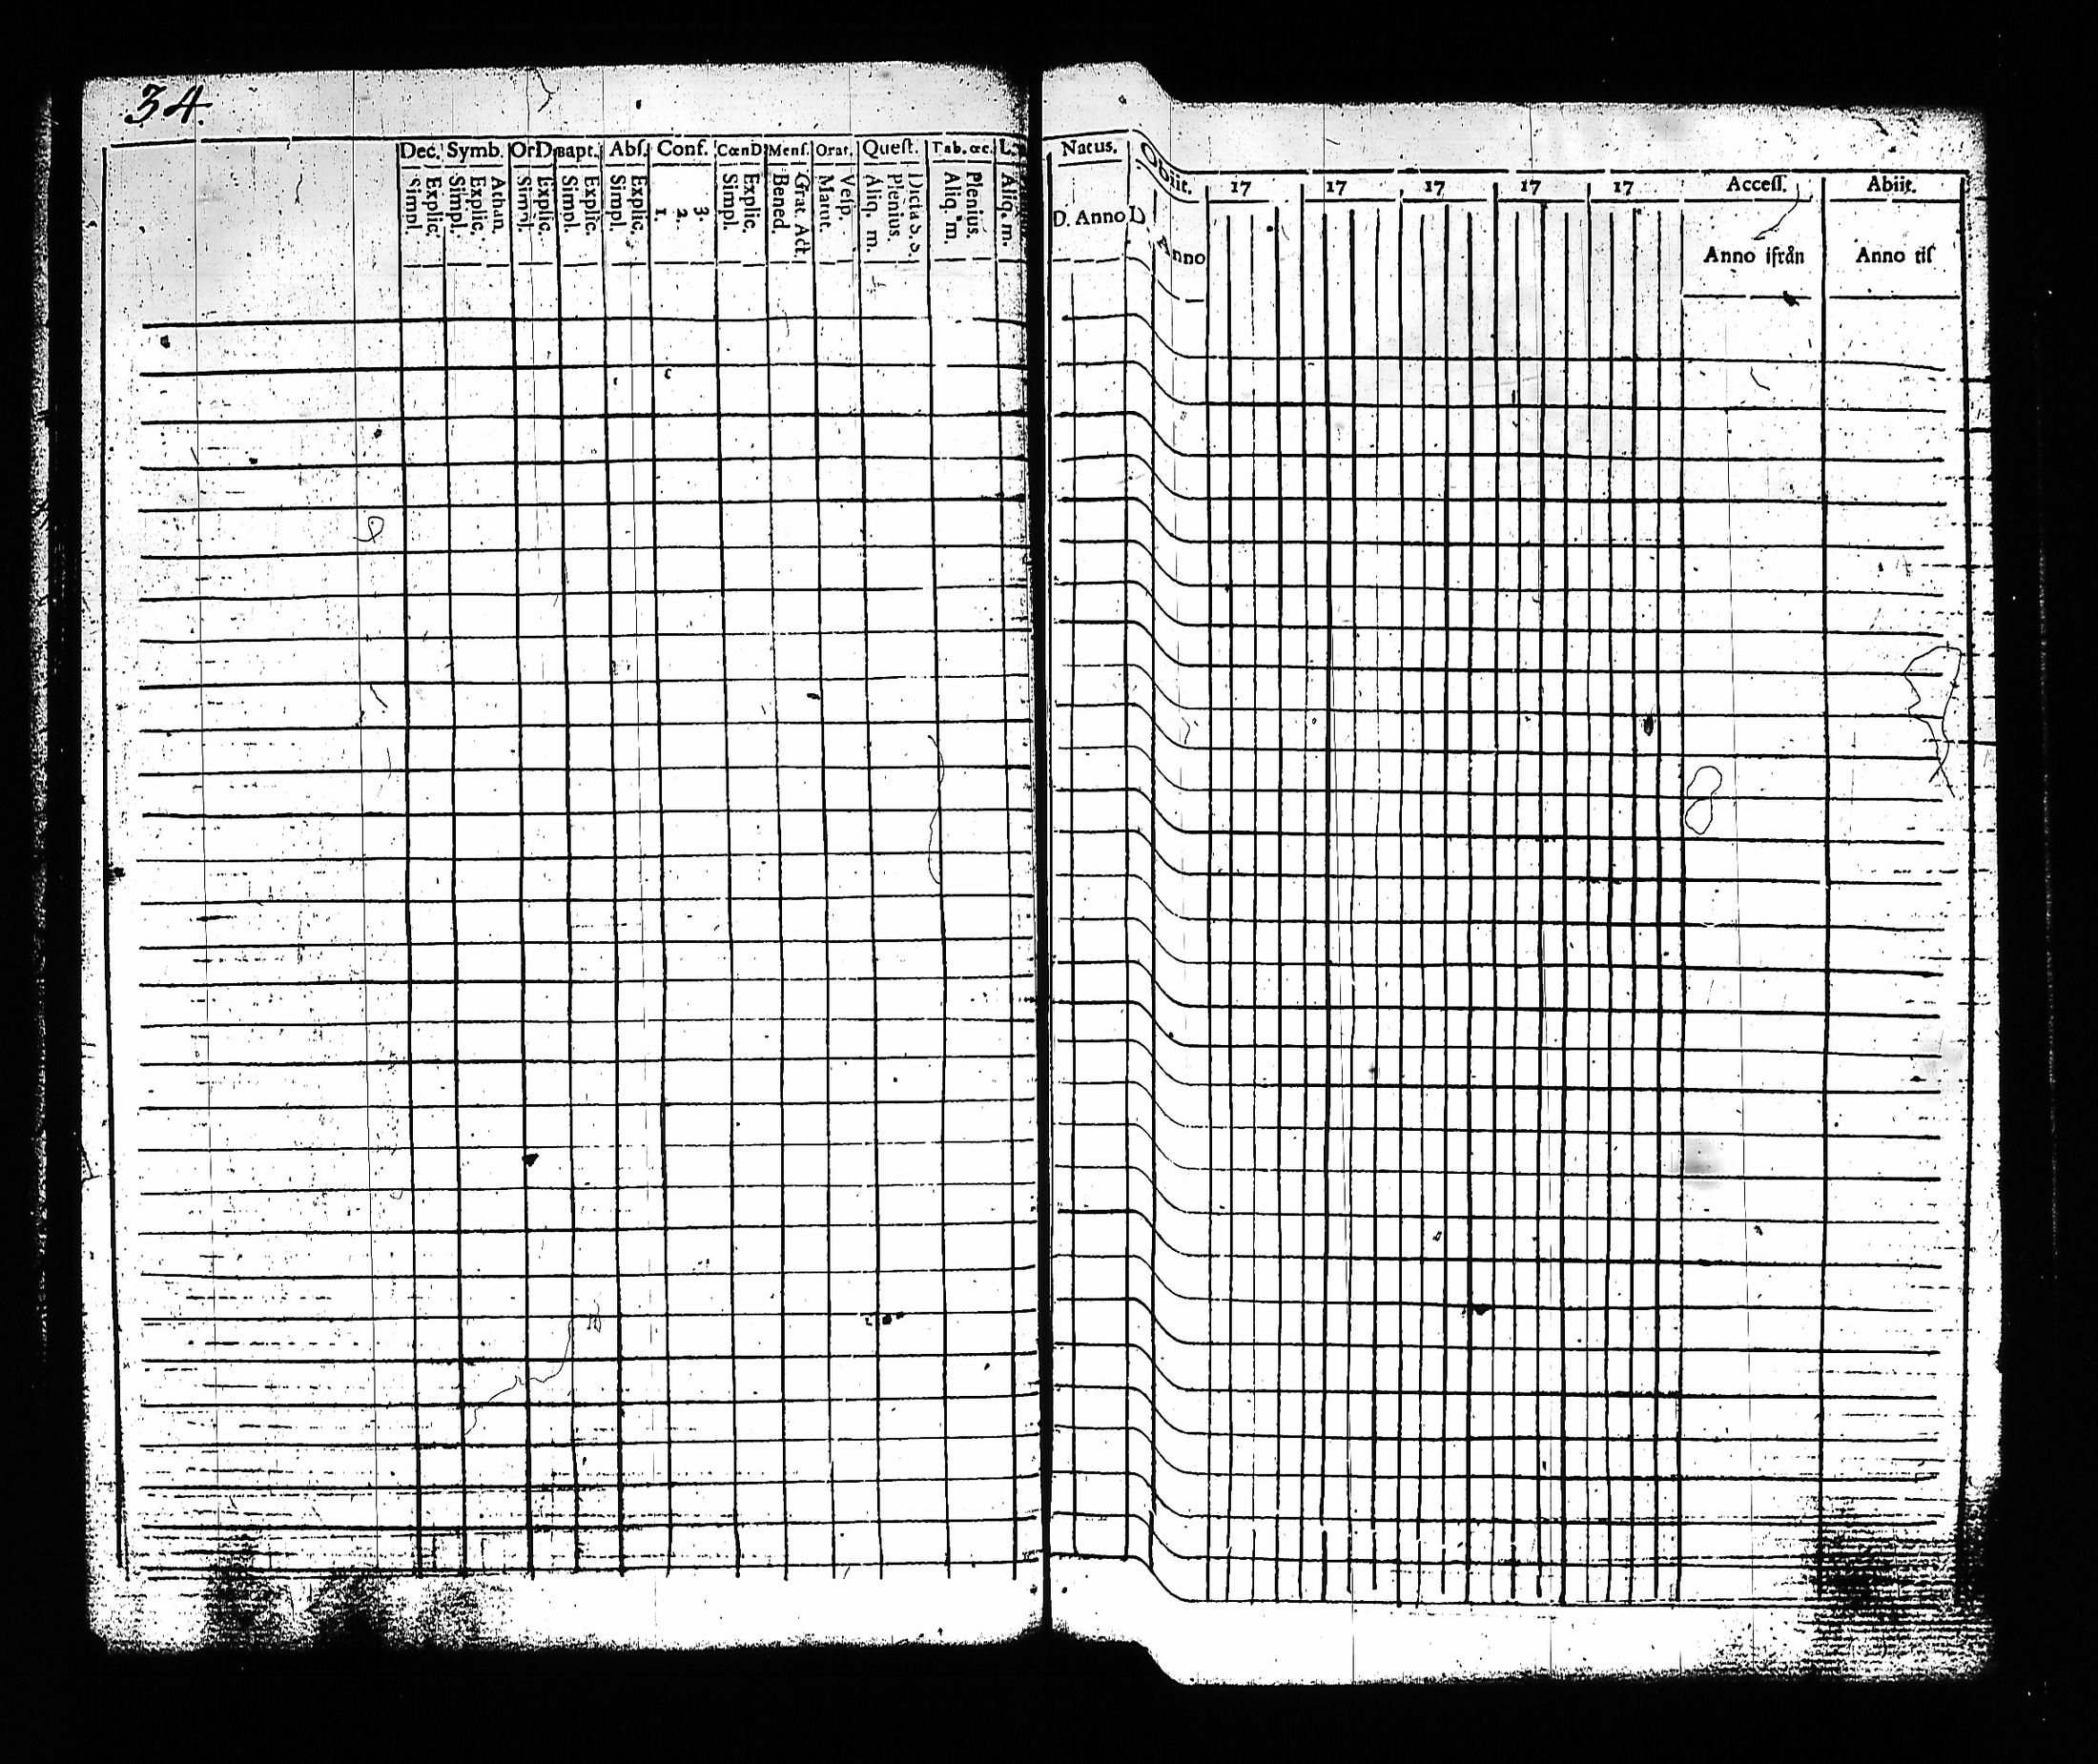 34.
Dec. Symb. OrD. Bapt. Abſ. Conf. CœnD. Menſ. Orat. Queſt. Tab. œc. L.
Simpl. Explic. Simpl. Explic. Athan. Simpl. Explic. Simpl. Explic. Simpl. Explic. 1. 2. 3. Simpl. Explic. Bened. Grat. Act. Matut. Veſp. Aliq. m. Plenius. Dicta S. S. Aliq. m. Plenius. Aliq. m.
Natus. Obiit. 17 17 17 17 17 Acceſſ. Abiit.
D. Anno D. Anno Anno ifrån Anno til